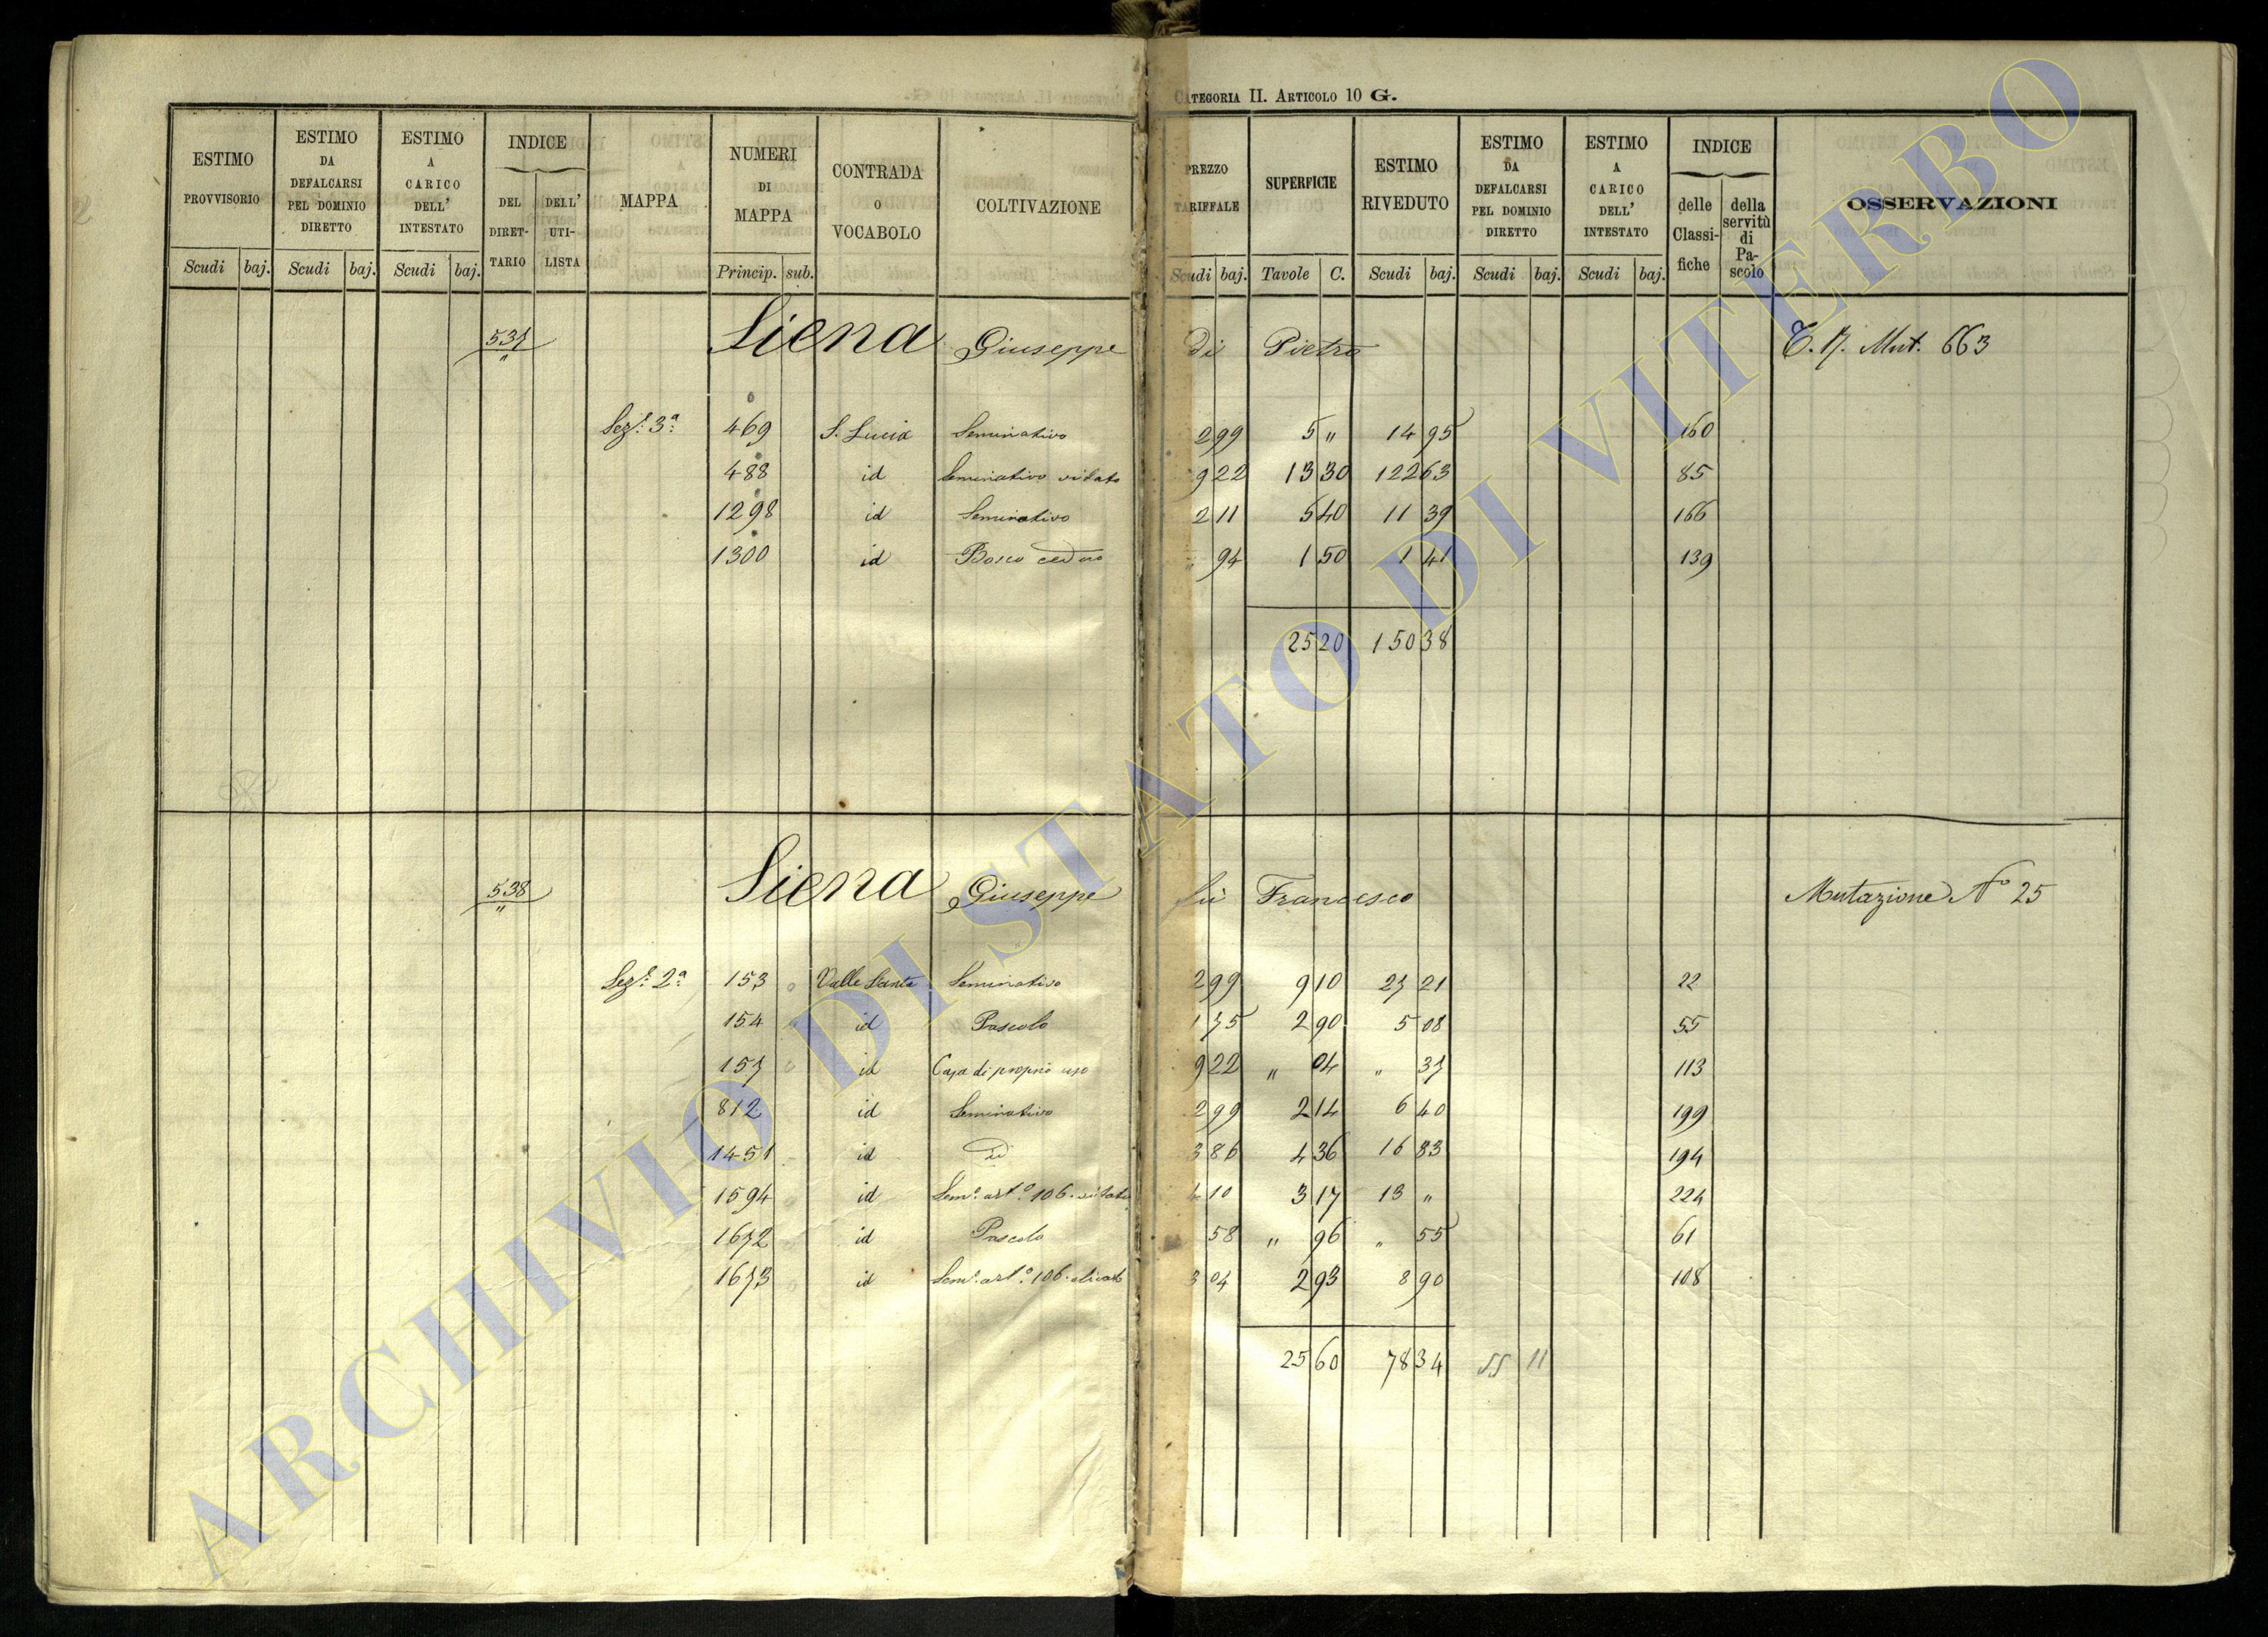 CATEGORIA II. ARTICOLO 10 G.
ESTIMO PROVVISORIO Scudi baj.
ESTIMO DA DEFALCARSI PEL DOMINIO DIRETTO Scudi baj.
ESTIMO A CARICO DELL' INTESTATO Scudi baj.
INDICE DEL DIRETTARIO DELL' UTILISTA
MAPPA
NUMERI DI MAPPA Princip. sub.
CONTRADA O VOCABOLO
COLTIVAZIONE
PREZZO TARIFFALE Scudi baj.
SUPERFICIE Tavole C.
ESTIMO RIVEDUTO Scudi baj.
ESTIMO DA DEFALCARSI PEL DOMINIO DIRETTO Scudi baj.
ESTIMO A CARICO DELL' INTESTATO Scudi baj.
INDICE delle Classifiche della servitù di Pascolo
OSSERVAZIONI
537 " Siena Giuseppe di Pietro Mut. 663
Sez.e 3a 469 S. Lucia Seminativo 2 99 5 " 14 95 160
488 id Seminativo vitato 9 22 13 30 122 63 85
1298 id Seminativo 2 11 5 40 11 39 166
1300 id Bosco ceduo " 94 1 50 1 41 139
25 20 150 38
538 " Siena Giuseppe fù Francesco Mutazione No 25
Sez.e 2a 153 Valle Santa Seminativo 2 99 9 10 27 21 22
154 id Pascolo 1 75 2 90 5 08 55
157 id Casa di proprio uso 9 22 " 04 " 37 113
812 id Seminativo 2 99 2 14 6 40 199
1451 id id 3 86 4 36 16 83 194
1594 id Sem.o art.o 106. vitato 4 10 3 17 13 " 224
1672 id Pascolo 58 " 96 " 55 61
1673 id Sem.o art.o 106. olivato 3 04 2 93 8 90 108
25 60 78 34 55 11
ARCHIVIO DI STATO DI VITERBO